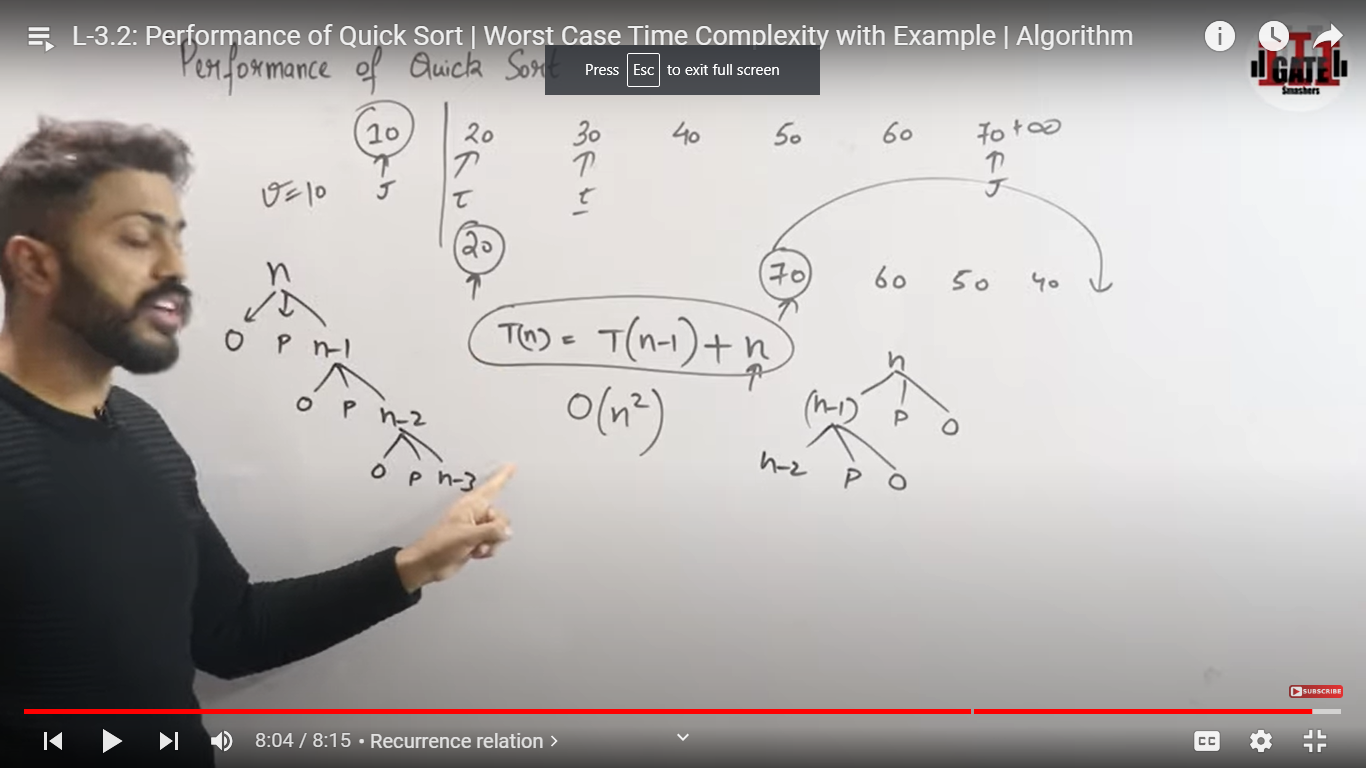 L-3.2: Performance of Quick Sort | Worst Case Time Complexity with Example | Algorithm
Press Esc to exit full screen
GATE
Smashers
Performance of Quick Sort
10 20 30 40 50 60 70 +∞
v=10 J I I J
20
70 60 50 40
n
O P n-1
O P n-2
O P n-3
T(n) = T(n-1) + n
O(n²)
n
(n-1) P O
n-2 P O
SUBSCRIBE
8:04 / 8:15 • Recurrence relation >
CC